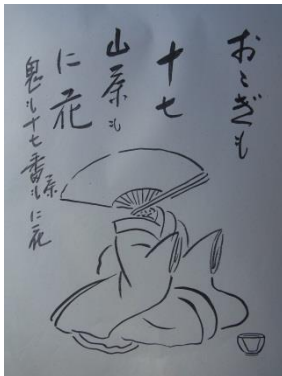 おゝぎも
十七
山茶も
に花
鬼も十七番茶もに花